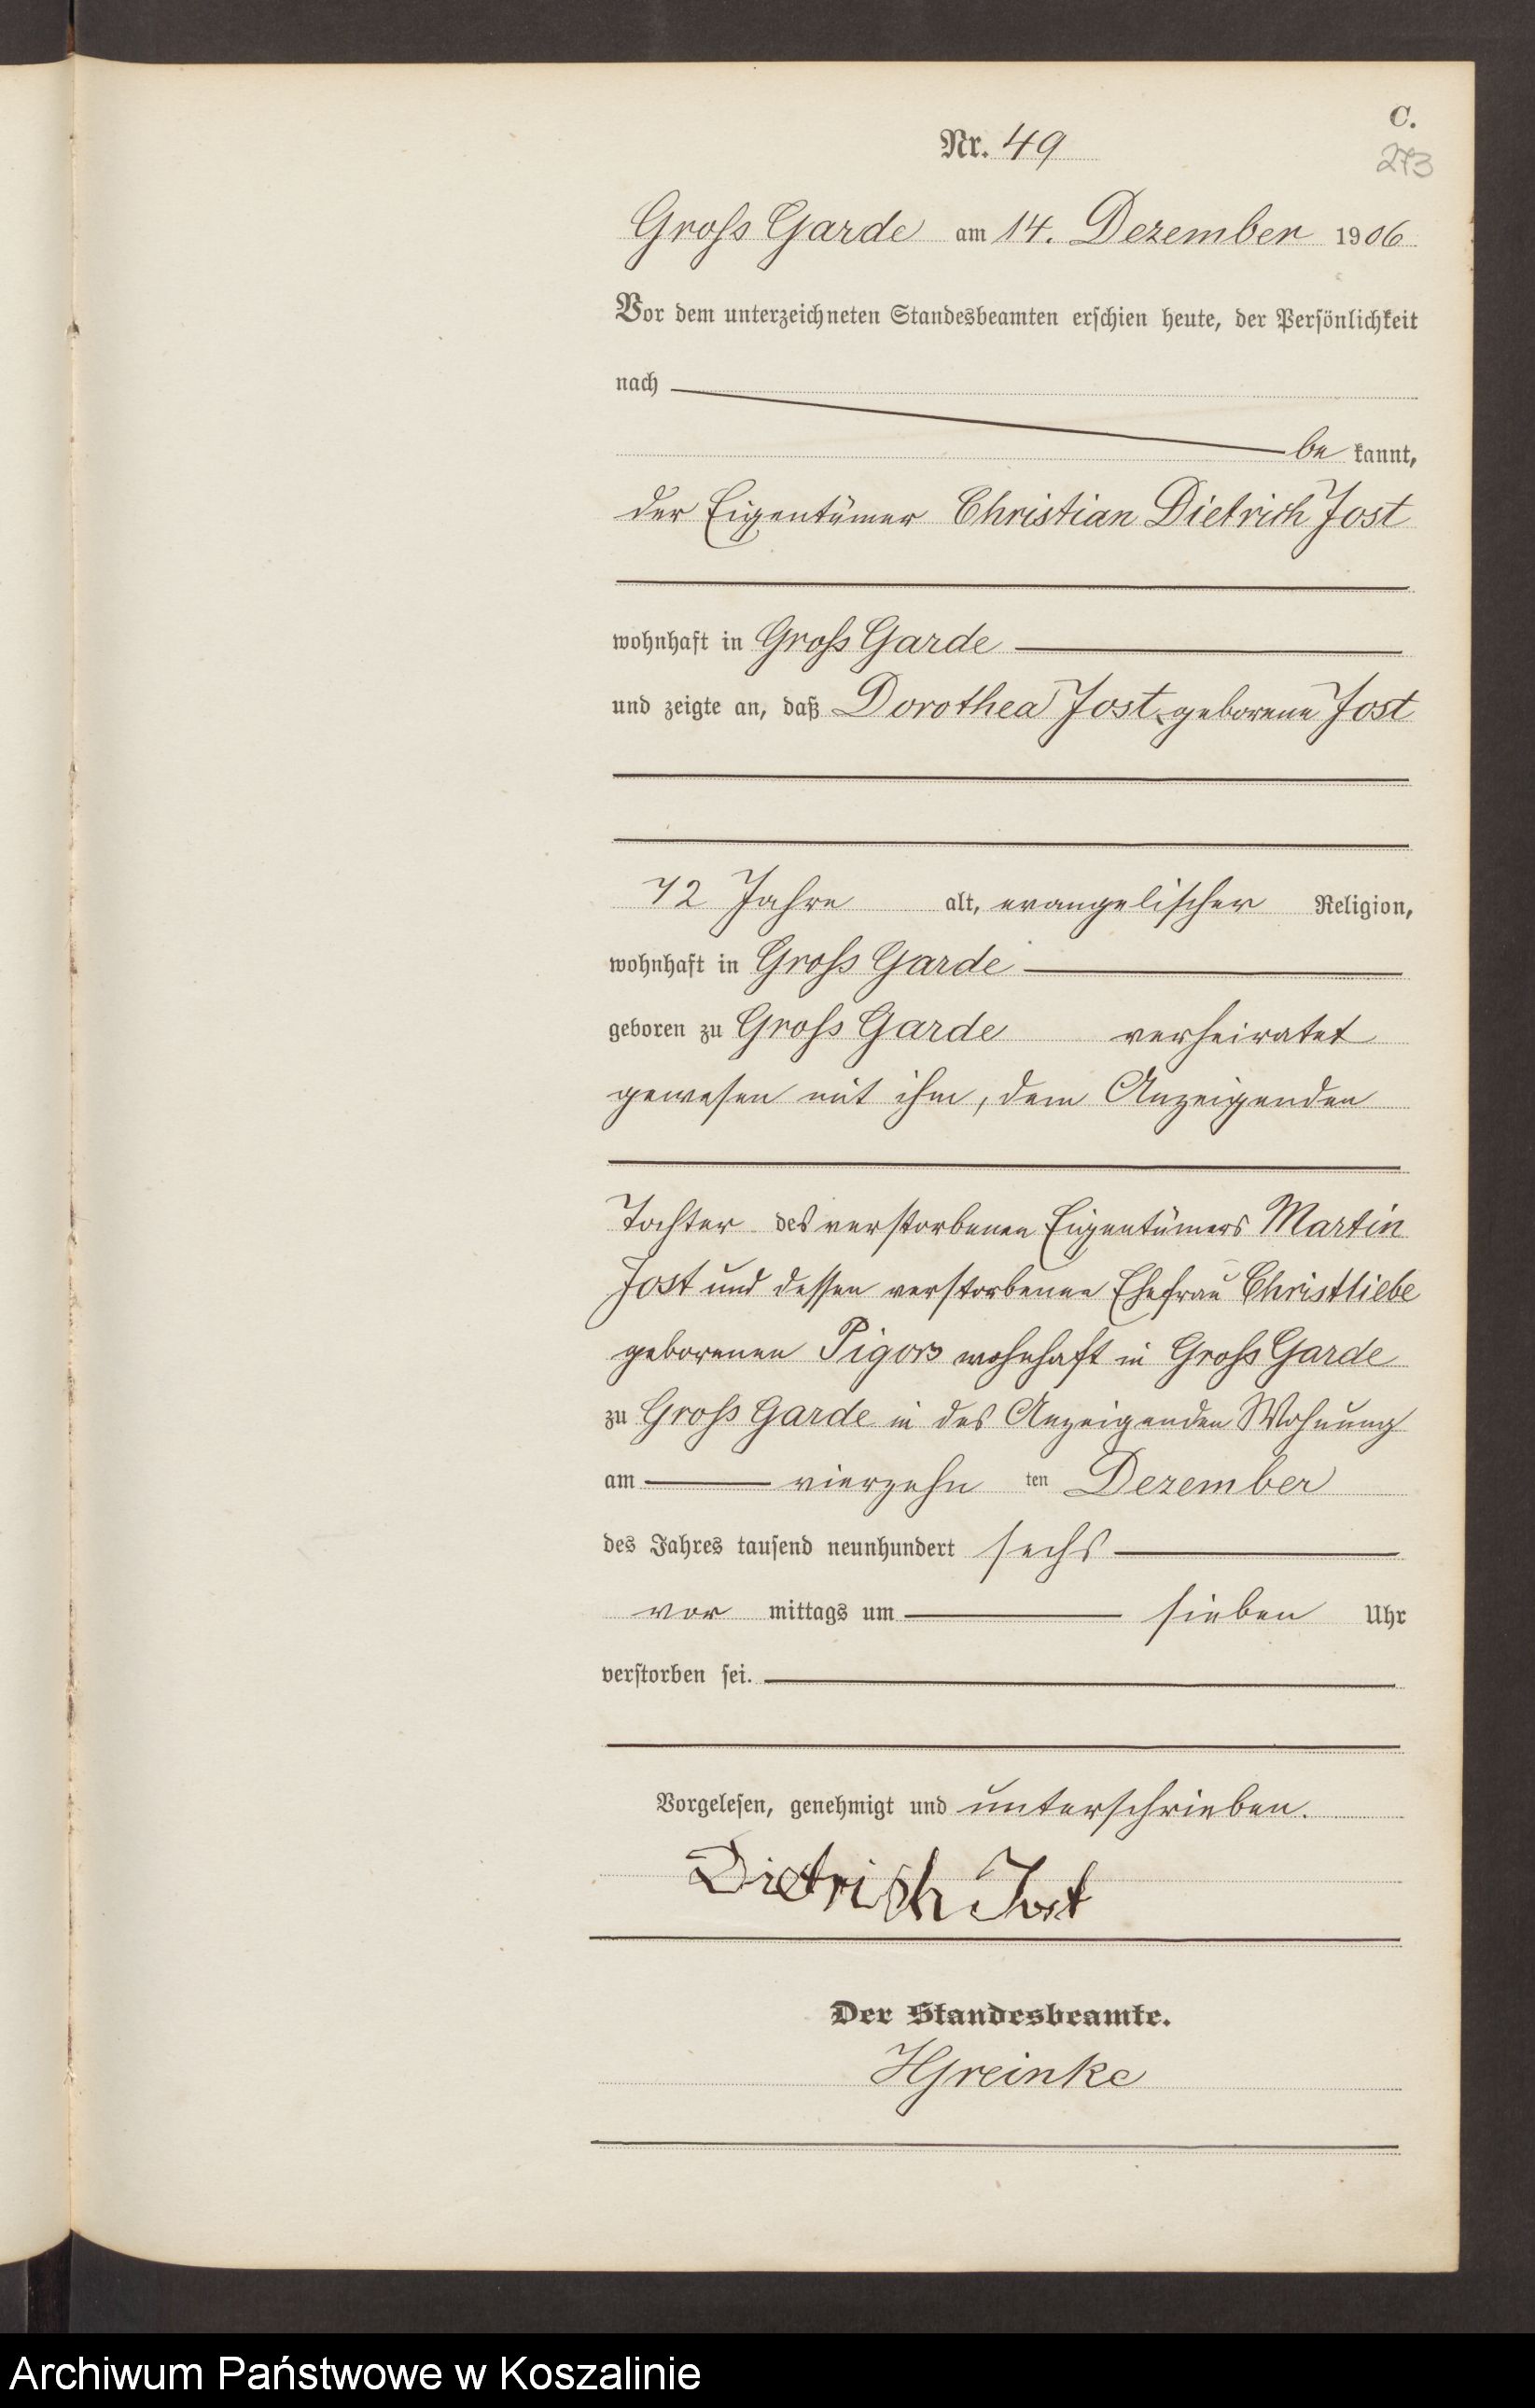 C.
Nr. 49
273
Gross Garde am 14. Dezember 1906
Vor dem unterzeichneten Standesbeamten erschien heute, der Persönlichkeit
nach
be kannt,
der Eigentümer Christian Dietrich Jost
wohnhaft in Gross Garde
und zeigte an, daß Dorothea Jost, geborene Jost
72 Jahre alt, evangelischer Religion,
wohnhaft in Gross Garde
geboren zu Gross Garde verheiratet
gewesen mit ihm, dem Anzeigenden
Tochter des verstorbenen Eigentümers Martin
Jost und dessen verstorbenen Ehefrau Christliebe
geborenen Pigors wohnhaft in Gross Garde
zu Gross Garde in des Anzeigenden Wohnung
am vierzehn ten Dezember
des Jahres tausend neunhundert sechs
vor mittags um sieben Uhr
verstorben sei.
Vorgelesen, genehmigt und unterschrieben.
Dietrich Jost
Der Standesbeamte.
HGreinke
Archiwum Państwowe w Koszalinie